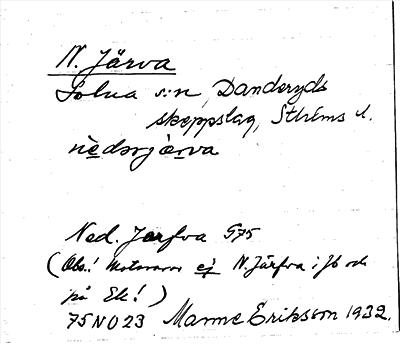 N. Järva
Solna s:n, Danderyds
skeppslag, Sthlms l.
nèdərjæ̀rva
Ned. Jerfva G75
(Obs.! Motsvarar ej N. Järfva i Jb och
på Ek!)
75NO23 Manne Eriksson 1932.